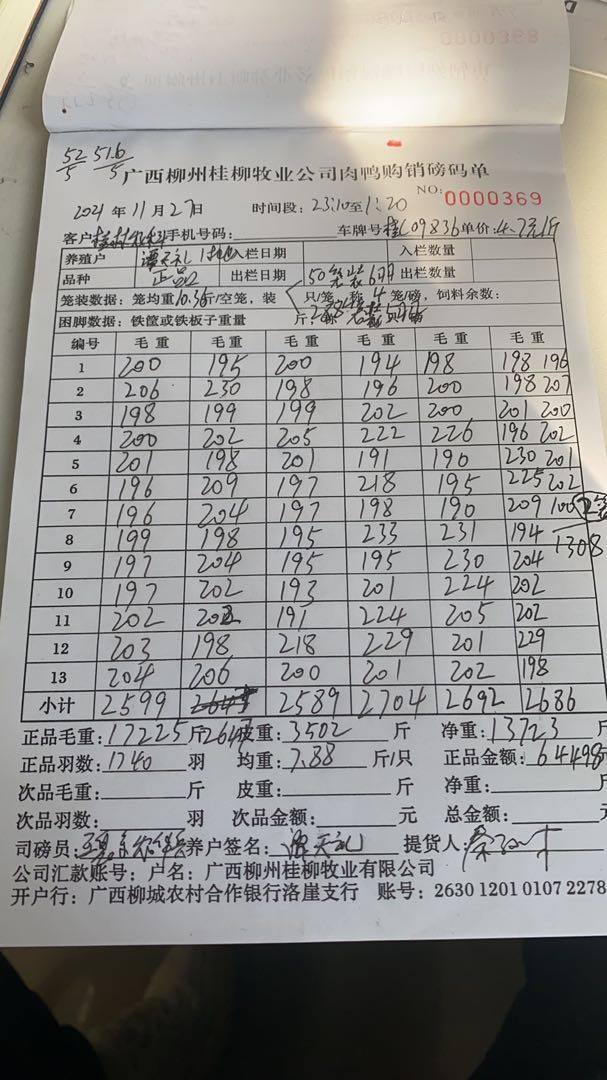 52/5 51.6/5
广西柳州桂柳牧业公司肉鸭购销磅码单
NO: 0000369
2021 年 11 月 27 日 时间段: 23:10 至 1:20
客户 手机号码: 车牌号 桂L09836 单价: 4.7元/斤
养殖户 入栏日期 入栏数量
品种 正品 出栏日期 50笼装6只 出栏数量
笼装数据: 笼均重 10.36 斤/空笼, 装 只/笼, 称 4 笼/磅, 饲料余数:
困脚数据: 铁筐或铁板子重量 斤,
编号 毛重 毛重 毛重 毛重 毛重 毛重
1 200 195 200 194 198 198 196
2 206 230 198 196 200 198 207
3 198 199 199 202 200 201 200
4 200 202 205 222 226 196 202
5 201 198 201 191 190 230 201
6 196 209 197 218 195 225 202
7 196 204 197 198 190 209 100 2笼
8 199 198 195 233 231 194 1308
9 197 204 195 195 230 204
10 197 202 193 201 224 202
11 202 202 191 224 205 202
12 203 198 218 229 201 229
13 204 206 200 201 202 198
小计 2599 2589 2704 2692 2686
正品毛重: 17225 斤 2647 皮重: 3502 斤 净重: 13723 斤
正品羽数: 1740 羽 均重: 7.88 斤/只 正品金额: 64498
次品毛重: 斤 皮重: 斤 净重: 斤
次品羽数: 羽 次品金额: 元 总金额: 元
司磅员: 养户签名: 提货人:
公司汇款账号: 户名: 广西柳州桂柳牧业有限公司
开户行: 广西柳城农村合作银行洛崖支行 账号: 2630 1201 0107 2278